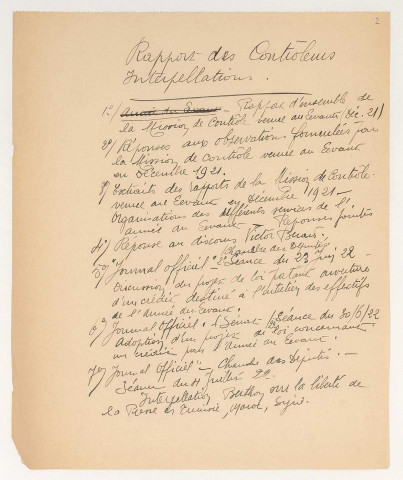 2
Rapport des Contrôleurs
Interpellations.
1°/ Rapport d'ensemble de
la Mission de Contrôle venue au Levant (Déc. 21)
2°/ Réponses aux observations formulées par
la Mission de Contrôle venue au Levant
en Décembre 1921.
3°/ Extraits des rapports de la Mission de Contrôle
venue au Levant en Décembre 1921 –
Organisation des différents services de l'
armée du Levant – Réponses jointes
4°/ Réponse au discours Victor Bérard.
(Chambre des Députés)
5°/ "Journal Officiel" 2e Séance du 23 juin 22 –
Discussion du projet de loi portant ouverture
d'un crédit destiné à l'entretien des effectifs
de l'Armée du Levant.
6°/ "Journal Officiel" Sénat Séance du 30/6/22
Adoption d'un projet de loi concernant
un crédit pour l'armée du Levant.
7°/ "Journal Officiel" – Chambre des Députés. –
Séance du Juillet 22 –
Interpellation Berthon sur la liberté de
la Presse en Tunisie, Maroc, Syrie.